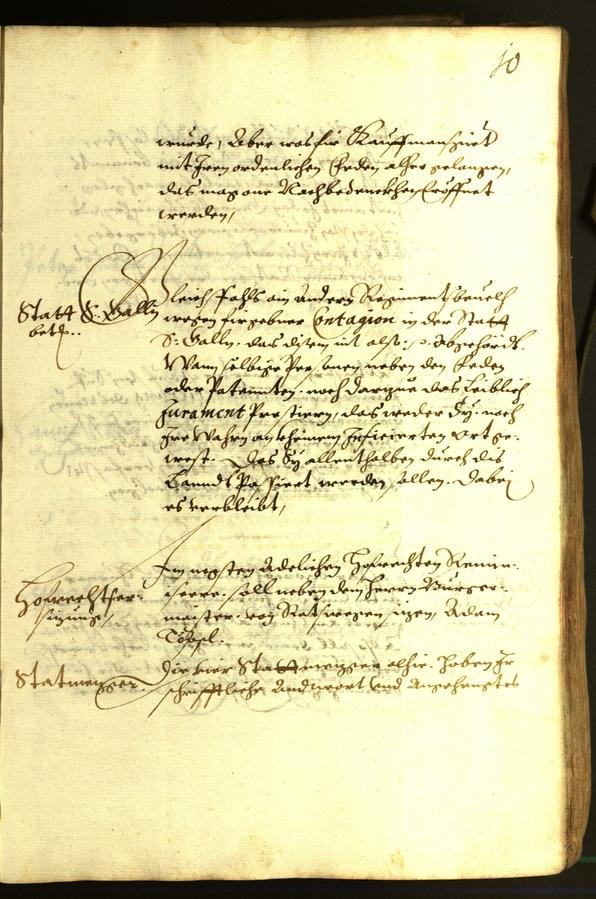 10
wurde, Aber was für Kauffmanschafft
mit Iren ordenlichen Feden alher gelangen,
das mag one Nachbedenckhen Eröffnet
werden,
Statt S. Galln
betr:
Gleich fahls ain anders Regiments beuelch
wegen fürgebner Contagion in der Statt
S: Galln. das disem nit also: abgehördt.
Wann selbige Personen neben den Feden
oder Patennten. noch darzue das Leiblich
Jurament Prestiern, das weder Sy. noch
Ire Wahrn an kheinem Inficierten Ort ge-
west. Das Sy allenthalben durch dis
Lanndt Passiert werden sollen. Dabei
es verbleibt,
Hofrechtser-
sizung
Im negsten Adelichen Hofrechten
soll neben dem Herrn Burger-
maister. von Rats wegen sizen, Adam
Statmezger.
Die vier Stattmezger alhie. haben Ir
schrifftliche Andtwort Und Angehenngtes